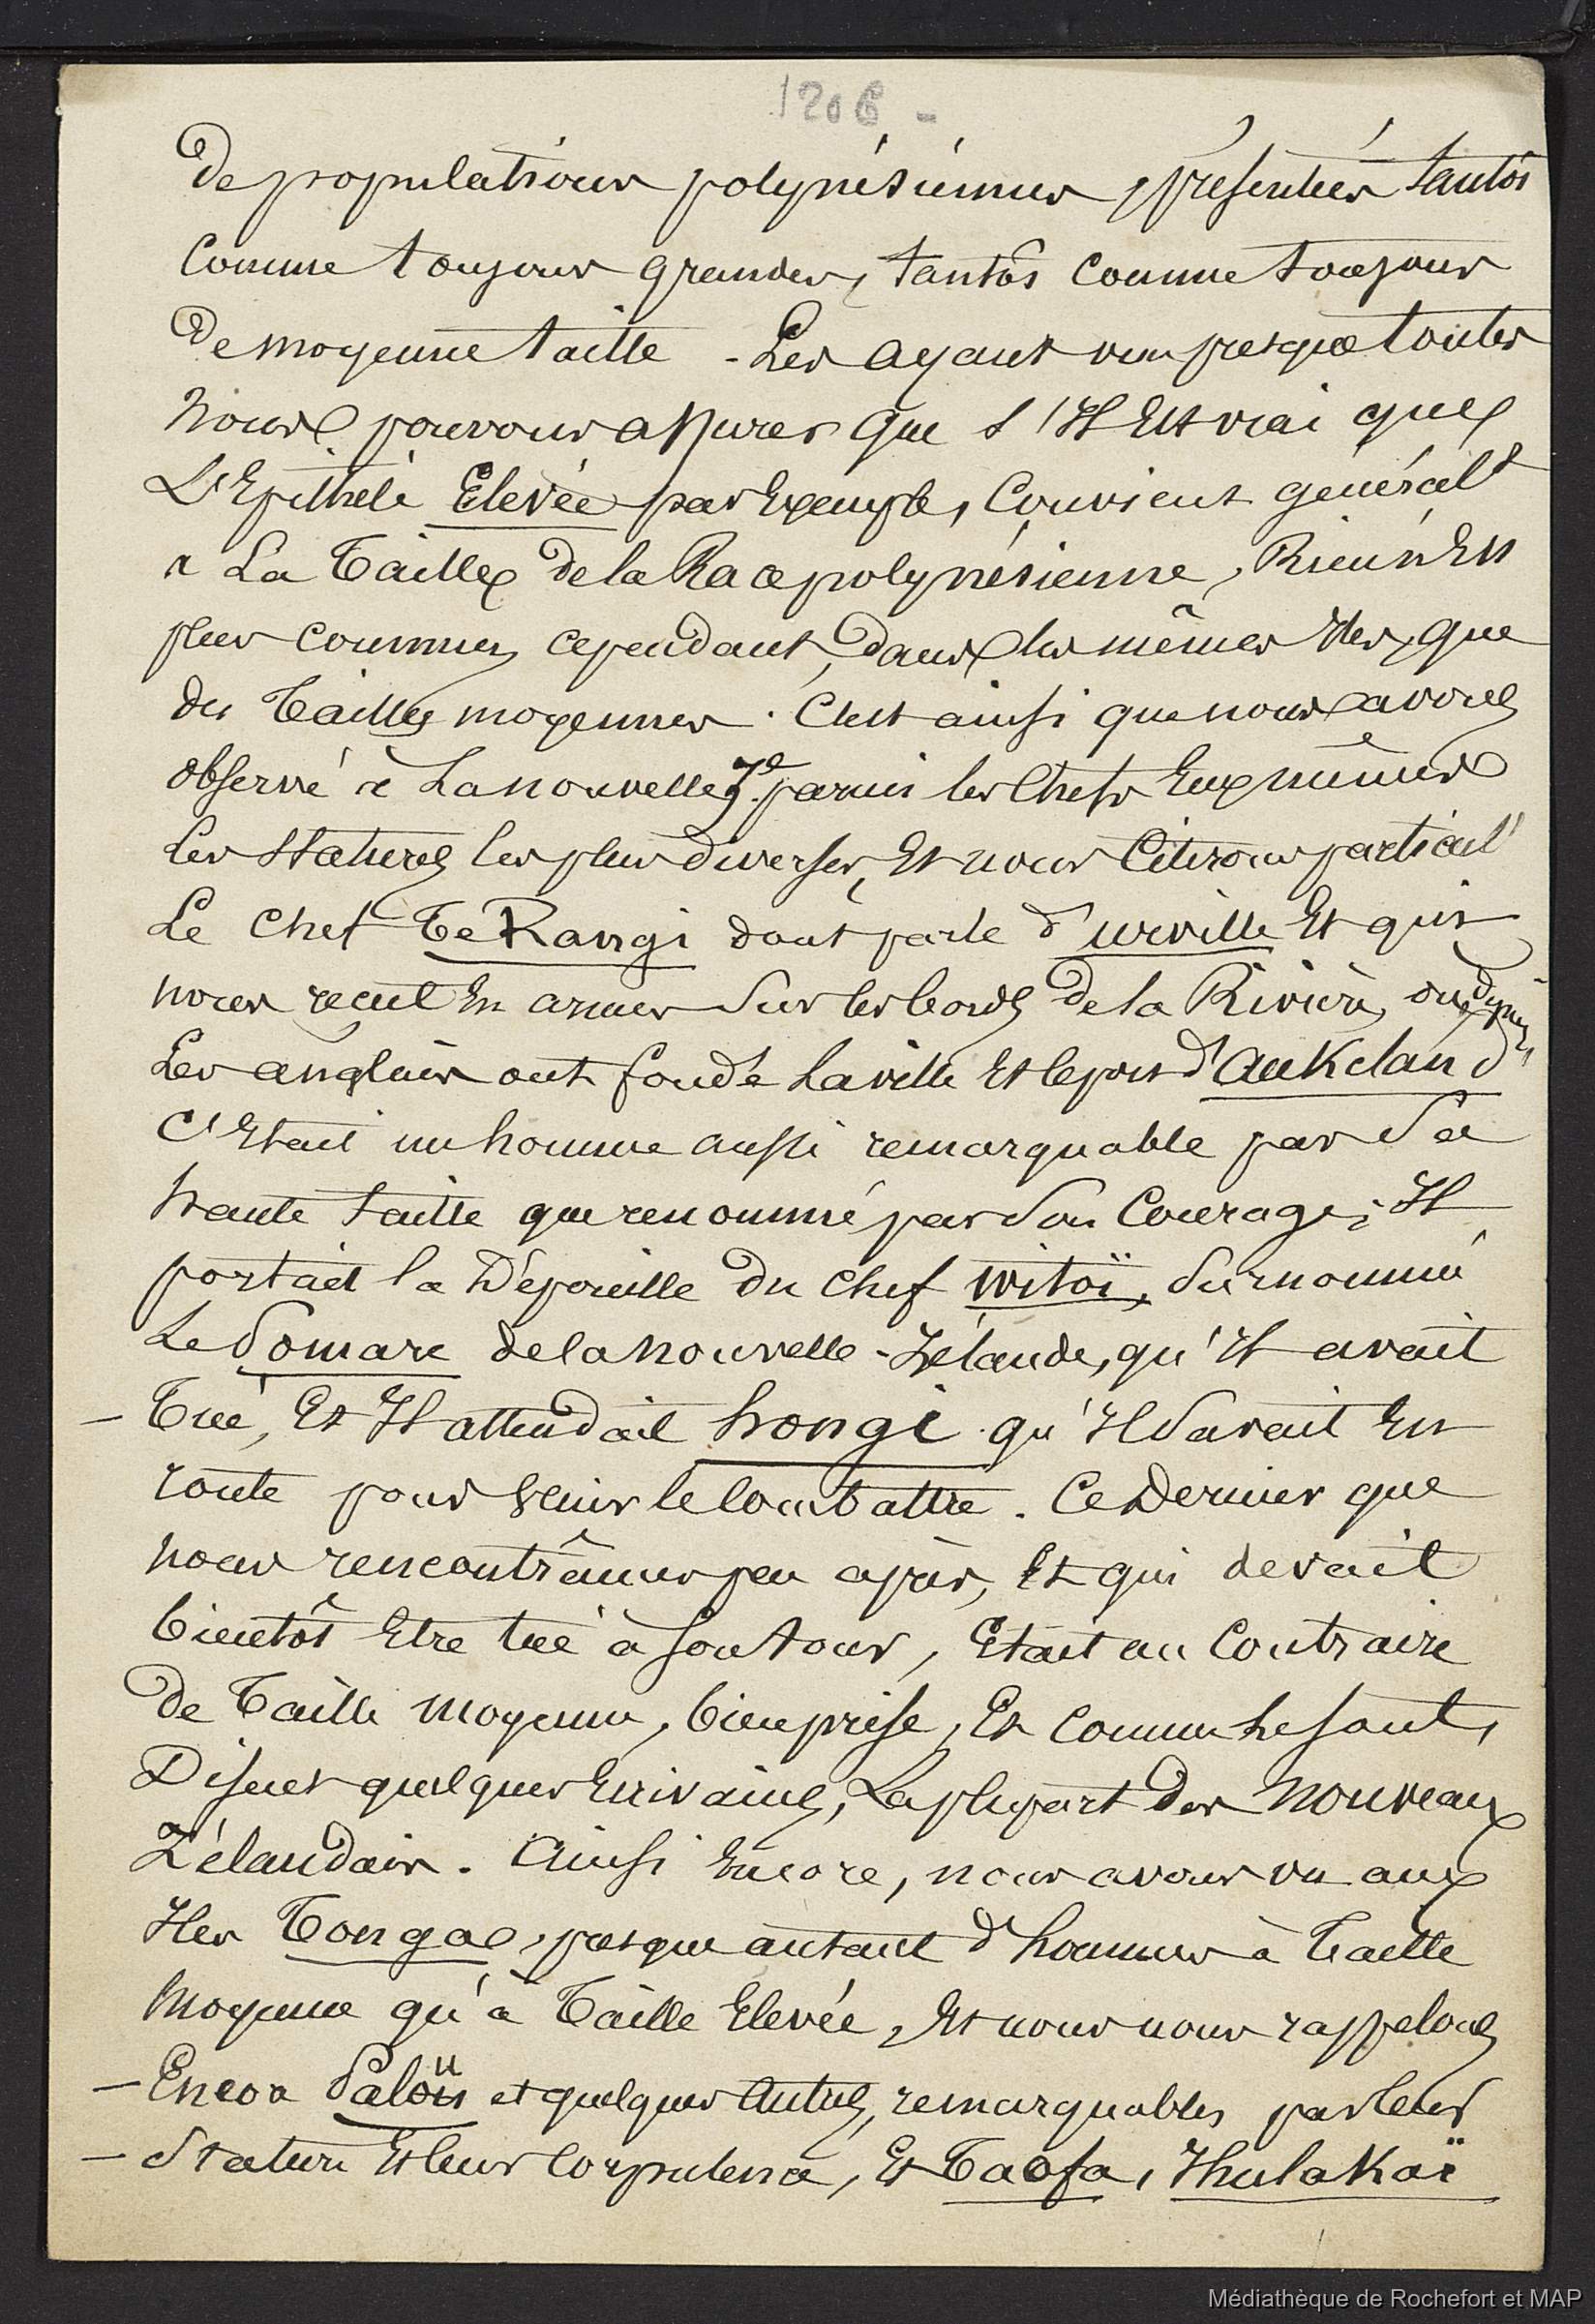 1206 -
De populations polynésiennes, présentées tantôt
Comme toujours grandes, tantôt comme toujours
De moyenne taille - Les ayant vu presque toutes
Nous pouvons assurer que s'Il Est vrai que
L'Epithète Elevée par Exemple, Convient général.t
à La Taille de la Race polynésienne, Rien n'Est
plus commun, cependant, dans les mêmes Iles, que
des Tailles moyennes. C'est ainsi que nous avons
observé à La nouvelle Z.e parmi les Chefs Eux mêmes
Les Statures les plus diverses, Et nous Citerons particul.t
Le Chef Te Rangi dont parle d'urville Et qui
nous reçut En armes Sur les bords De la Rivière, où depuis
Les anglais ont fondé La ville Et le port d'Aukcland,
C'Etait un homme aussi remarquable par Sa
haute taille que renommé par Son Courage; Il
portait la Dépouille Du Chef Witoï, Surnommé
Le Pomare de la Nouvelle-Zélande, qu'Il avait
- Tué, Et Il attendait hongi qu'Il Savait En
route pour Venir le Combattre. Ce Dernier que
nous rencontrâmes peu après, Et qui devait
bientôt Etre tué à Son tour, Etait au Contraire
de Taille moyenne, bien prise, Et Comme le sont,
Disent quelques Ecrivains, La plupart des Nouveaux
Zélandais. Ainsi Encore, nous avons vu aux
Iles Tonga, presque autant d'hommes à Taille
moyenne qu'à Taille Elevée, Et nous nous rappelons
- Encore Palou et quelques Autres, remarquables par leur
- Stature Et leur Corpulence, Et Taofa, Ihulakaï
Médiathèque de Rochefort et MAP